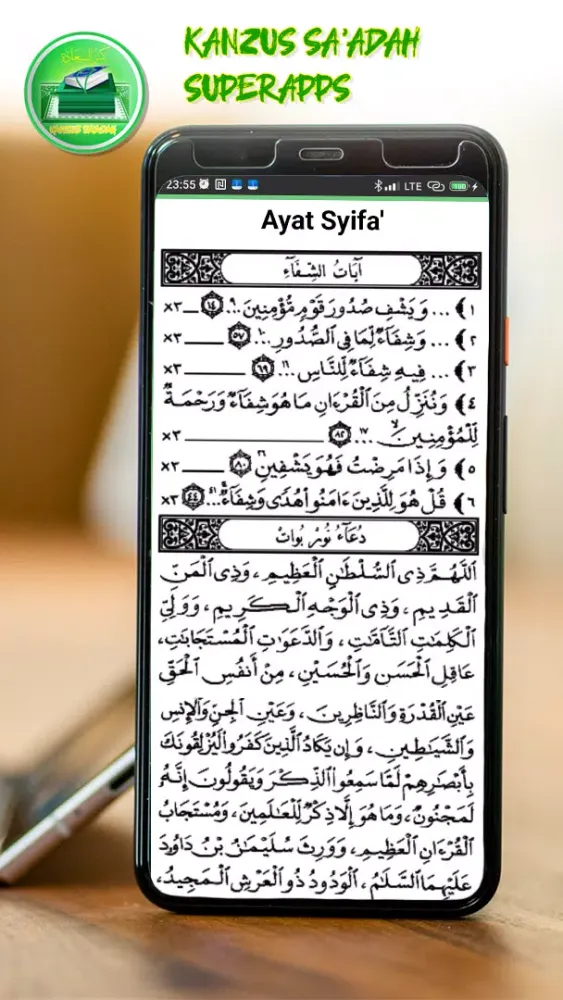 KANZUS SA'ADAH
SUPERAPPS
KANZUS SA'ADAH
23:55 LTE 100
Ayat Syifa'
آيَاتُ الشِّفَآءِ
١﴾ ... وَيَشْفِ صُدُورَ قَوْمٍ مُؤْمِنِينَ ... ١٤ ــ ×٣
٢﴾ ... وَشِفَآءٌ لِّمَا فِى الصُّدُورِ ... ٥٧ ــ ×٣
٣﴾ ... فِيهِ شِفَآءٌ لِّلنَّاسِ ... ٦٩ ــ ×٣
٤﴾ وَنُنَزِّلُ مِنَ الْقُرْءَانِ مَا هُوَ شِفَآءٌ وَرَحْمَةٌ
لِّلْمُؤْمِنِينَ ... ٨٢ ــ ×٣
٥﴾ وَإِذَا مَرِضْتُ فَهُوَ يَشْفِينِ ٨٠ ــ ×٣
٦﴾ قُلْ هُوَ لِلَّذِينَ ءَامَنُوا هُدًى وَشِفَآءٌ ... ٤٤ ×٣
دُعَآءُ نُوْرْ بُوَاتْ
اَللّٰهُمَّ ذِى السُّلْطَانِ الْعَظِيْمِ ، وَذِى الْمَنِّ
الْقَدِيْمِ ، وَذِى الْوَجْهِ الْكَرِيْمِ ، وَوَلِيِّ
الْكَلِمَاتِ التَّامَّاتِ ، وَالدَّعَوَاتِ الْمُسْتَجَابَاتِ ،
عَاقِلِ الْحَسَنِ وَالْحُسَيْنِ ، مِنْ أَنْفُسِ الْحَقِّ
عَيْنِ الْقُدْرَةِ وَالنَّاظِرِيْنَ ، وَعَيْنِ الْجِنِّ وَالْإِنْسِ
وَالشَّيَاطِيْنِ ، وَإِنْ يَكَادُ الَّذِيْنَ كَفَرُوْا لَيُزْلِقُوْنَكَ
بِأَبْصَارِهِمْ لَمَّا سَمِعُوا الذِّكْرَ وَيَقُوْلُوْنَ إِنَّهُ
لَمَجْنُوْنٌ ، وَمَا هُوَ إِلَّا ذِكْرٌ لِلْعَالَمِيْنَ ، وَمُسْتَجَابُ
الْقُرْءَانِ الْعَظِيْمِ ، وَوَرِثَ سُلَيْمَانُ بْنُ دَاوُدَ
عَلَيْهِمَا السَّلَامُ ، الْوَدُوْدُ ذُو الْعَرْشِ الْمَجِيْدُ ،